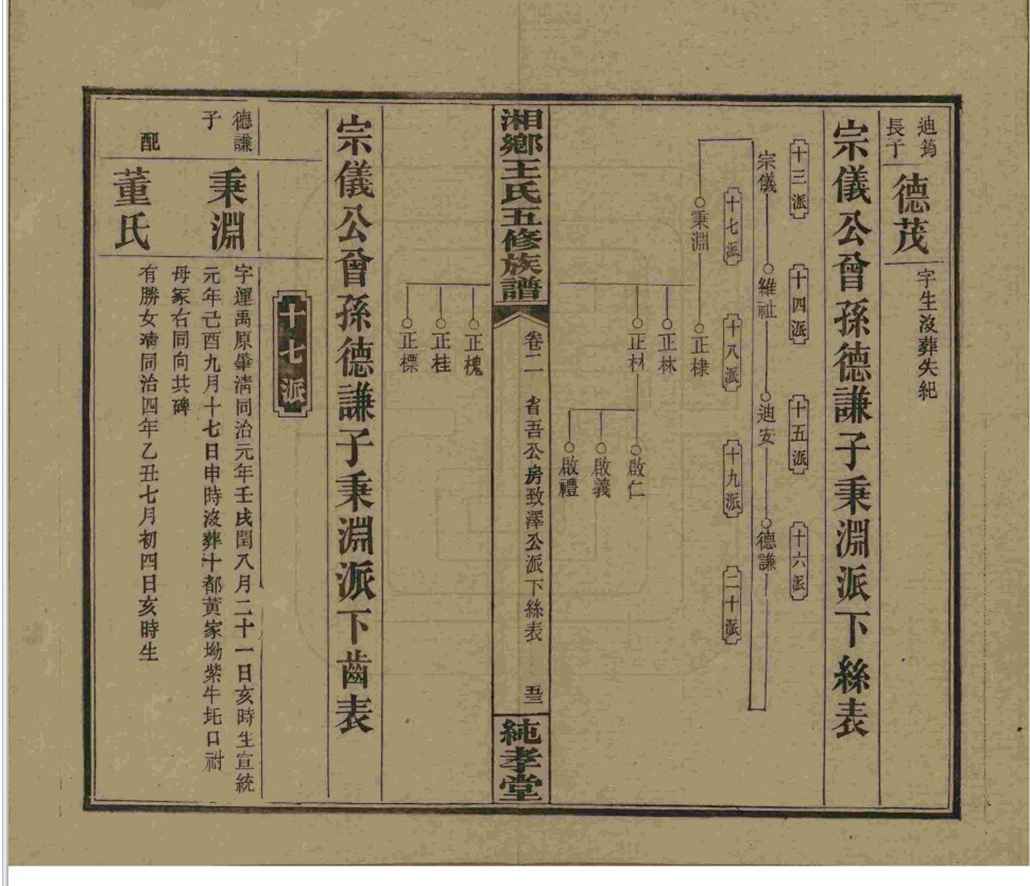 迪筠
長子
德茂
字生沒葬失紀
宗儀公曾孫德謙子秉淵派下絲表
十三派
十四派
十五派
十六派
宗儀
維祉
迪安
德謙
十七派
十八派
十九派
二十派
秉淵
正棣
正林
正材
啟仁
啟義
啟禮
湘鄉王氏五修族譜
卷二
省吾公房致澤公派下絲表
純孝堂
正槐
正桂
正標
宗儀公曾孫德謙子秉淵派下齒表
十七派
德謙
子
秉淵
字運禹原肇清同治元年壬戌閏八月二十一日亥時生宣統
元年己酉九月十七日申時沒葬十都黃家坳紫牛坵口祔
母冢右同向共碑
配
董氏
有勝女清同治四年乙丑七月初四日亥時生